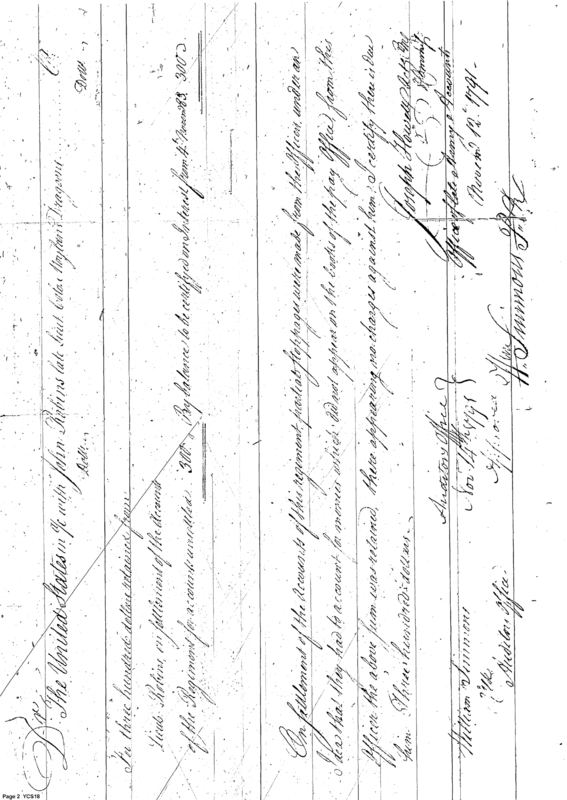 Dr. The United States in % with John Robins late Lieut. Colo. Moylan's Dragoons Cr.
Dolls. Dolls.
To three hundred dollars retained from
Lieut. Robins, on settlement of the accounts
of the Regiment for accounts unsettled 300 By balance to be certified on Interest from 4th Novem 83 300
On settlement of the Accounts of this regiment partial stoppages were made from the Officers, under an
Idea that they had to account for monies which did not appear on the books of the pay Office, from this
Officer the above sum was retained, there appearing no charges against him. I certify there is due
him Three hundred dollars.
Joseph Howell
Office of late Army Accounts
Novem 12 1791
Auditors Office
Nov 14th 1791
William Simmons
Auditors Office
Approved
W. Simmons
Page 2 YCS18